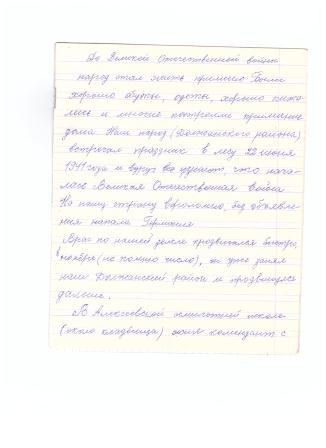 До Великой Отечественной войны
народ стал жить прилично. Были
хорошо обуты, одеты, хорошо пита-
лись и многие построили приличные
дома. Наш народ (Должанского района)
встречал праздник в лесу 22 июня
1941 года и вдруг все узнают, что нача-
лась Великая Отечественная война
На нашу страну вероломно, без объявле-
ния напала Германия
Враг по нашей земле продвигался быстро,
в ноябре (не помню число), он уже занял
наш Должанский район и продвигался
дальше.
В Алексеевской школе
(около кладбища) жил комендант с